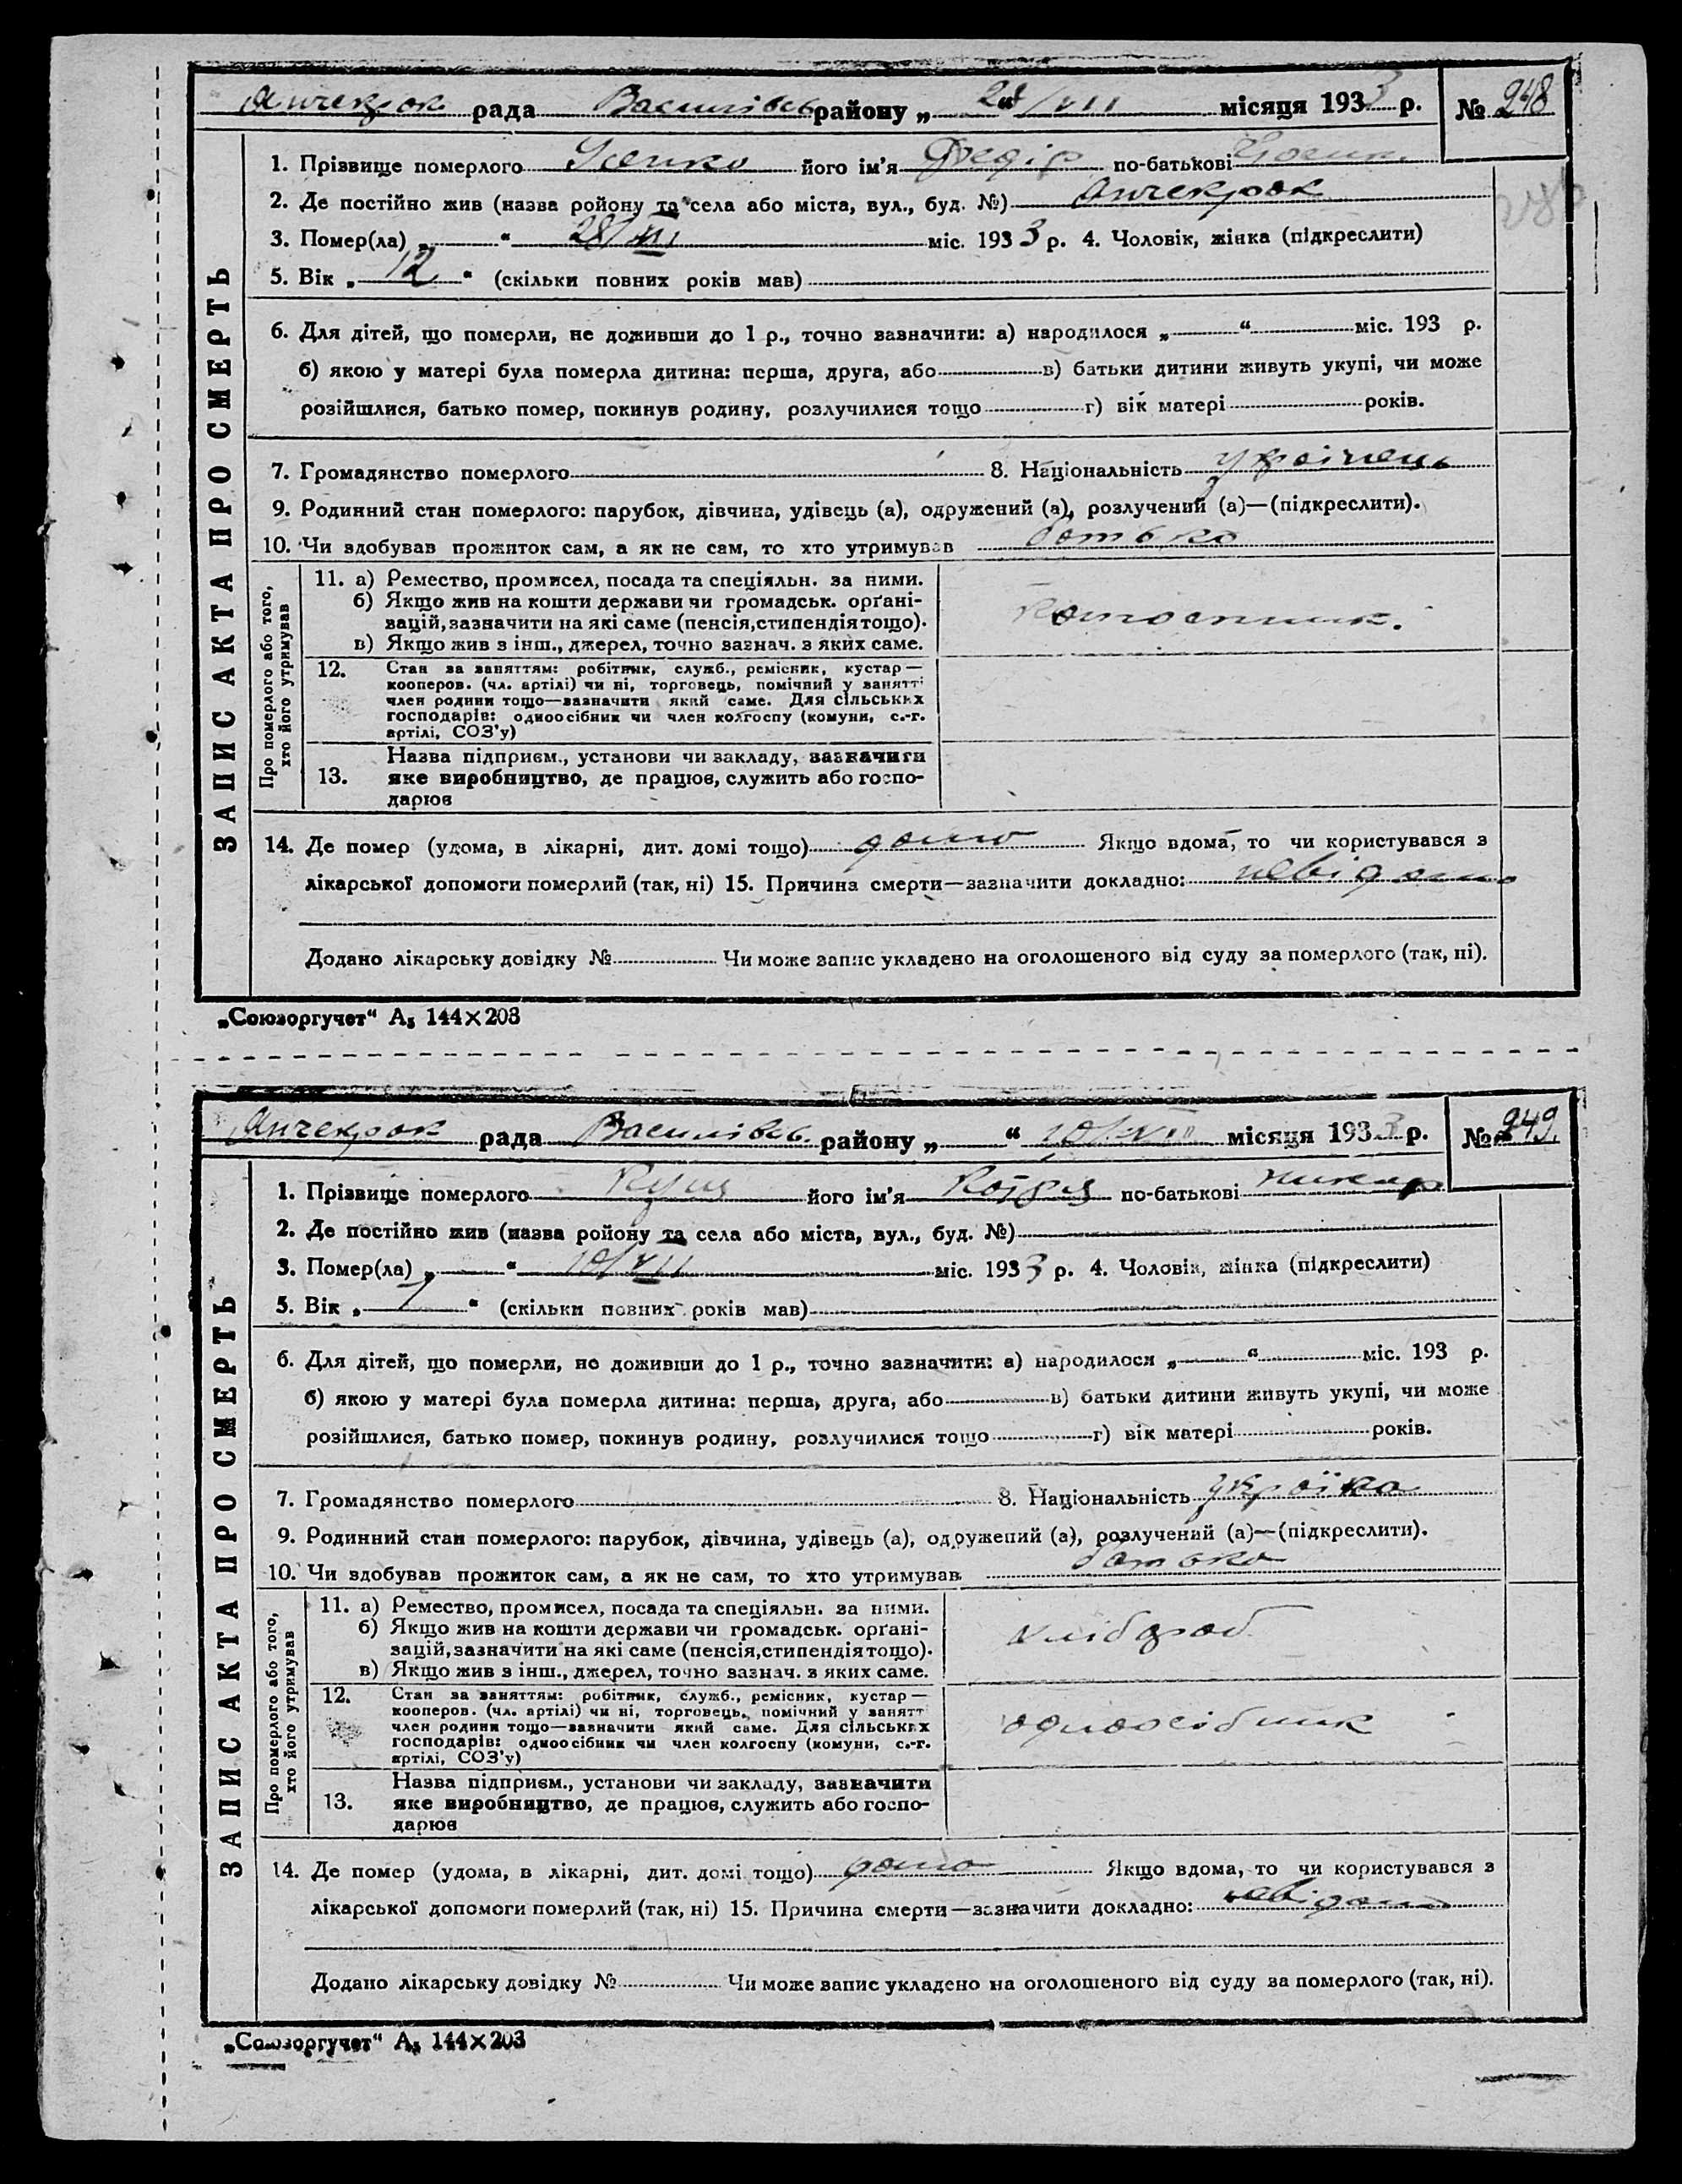 Янчекрак рада Василівсь району „ 28 “ /VII місяця 1933 р. № 248
1. Прізвище померлого його ім'я Федір по-батькові
2. Де постійно жив (назва ройону та села або міста, вул., буд. №) Янчекрак
3. Помер(ла) „ “ 28/VII міс. 1933 р. 4. Чоловік, жінка (підкреслити)
5. Вік „ 12 “ (скільки повних років мав)
6. Для дітей, що померли, не доживши до 1 р., точно зазначити: а) народилося „ “ міс. 193 р.
б) якою у матері була померла дитина: перша, друга, або в) батьки дитини живуть укупі, чи може
розійшлися, батько помер, покинув родину, розлучилися тощо г) вік матері років.
7. Громадянство померлого 8. Національність українець
9. Родинний стан померлого: парубок, дівчина, удівець (а), одружений (а), розлучений (а)—(підкреслити).
10. Чи здобував прожиток сам, а як не сам, то хто утримував батько
ЗАПИС АКТА ПРО СМЕРТЬ
Про померлого або того, хто його утримував
11. а) Ремество, промисел, посада та спеціяльн. за ними.
б) Якщо жив на кошти держави чи громадськ. орґані-
зацій, зазначити на які саме (пенсія, стипендія тощо).
в) Якщо жив з інш., джерел, точно зазнач. з яких саме.
12. Стан за заняттям: робітник, служб., ремісник, кустар—
кооперов. (чл. артілі) чи ні, торговець, помічний у занятті
член родини тощо—зазначити який саме. Для сільських
господарів: одноосібник чи член колгоспу (комуни, с.-г.
артілі, СОЗ'у)
13. Назва підприєм., установи чи закладу, зазначити
яке виробництво, де працює, служить або госпо-
дарює
14. Де помер (удома, в лікарні, дит. домі тощо) дома Якщо вдома, то чи користувався з
лікарської допомоги померлий (так, ні) 15. Причина смерти—зазначити докладно: невідомо
Додано лікарську довідку № Чи може запис укладено на оголошеного від суду за померлого (так, ні).
„Союзоргучет“ А₅ 144×203
Янчекрак рада Василівсь. району „ “ 10/VII місяця 1933 р. № 249.
1. Прізвище померлого Кущ його ім'я по-батькові
2. Де постійно жив (назва ройону та села або міста, вул., буд. №)
3. Помер(ла) „ “ 10/VII міс. 1933 р. 4. Чоловік, жінка (підкреслити)
5. Вік „ 7 “ (скільки повних років мав)
6. Для дітей, що померли, не доживши до 1 р., точно зазначити: а) народилося „ “ міс. 193 р.
б) якою у матері була померла дитина: перша, друга, або в) батьки дитини живуть укупі, чи може
розійшлися, батько помер, покинув родину, розлучилися тощо г) вік матері років.
7. Громадянство померлого 8. Національність україка
9. Родинний стан померлого: парубок, дівчина, удівець (а), одружений (а), розлучений (а)—(підкреслити).
10. Чи здобував прожиток сам, а як не сам, то хто утримував батько
ЗАПИС АКТА ПРО СМЕРТЬ
Про померлого або того, хто його утримував
11. а) Ремество, промисел, посада та спеціяльн. за ними.
б) Якщо жив на кошти держави чи громадськ. орґані-
зацій, зазначити на які саме (пенсія, стипендія тощо).
в) Якщо жив з інш., джерел, точно зазнач. з яких саме.
хлібороб
12. Стан за заняттям: робітник, служб., ремісник, кустар—
кооперов. (чл. артілі) чи ні, торговець, помічний у занятт
член родини тощо—зазначити який саме. Для сільських
господарів: одноосібник чи член колгоспу (комуни, с.-г.
артілі, СОЗ'у)
одноосібник
13. Назва підприєм., установи чи закладу, зазначити
яке виробництво, де працює, служить або госпо-
дарює
14. Де помер (удома, в лікарні, дит. домі тощо) дома Якщо вдома, то чи користувався з
лікарської допомоги померлий (так, ні) 15. Причина смерти—зазначити докладно: невідомо
Додано лікарську довідку № Чи може запис укладено на оголошеного від суду за померлого (так, ні).
„Союзоргучет“ А₅ 144×203